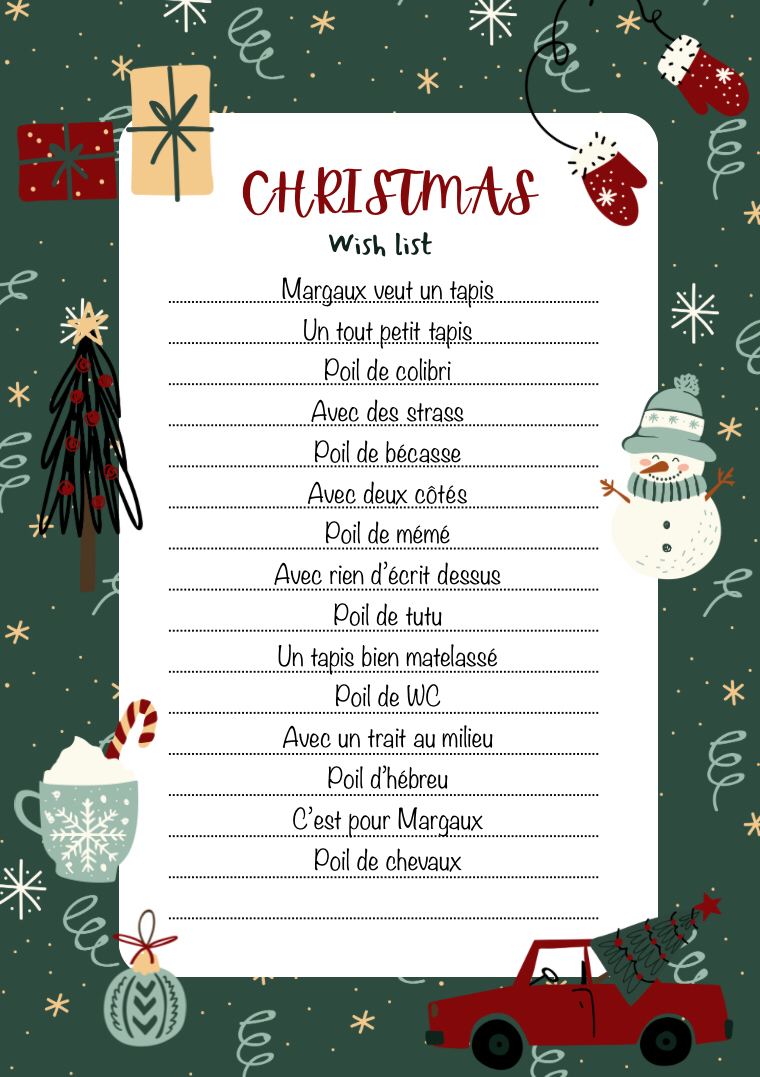 CHRISTMAS
Wish list
Margaux veut un tapis
Un tout petit tapis
Poil de colibri
Avec des strass
Poil de bécasse
Avec deux côtés
Poil de mémé
Avec rien d'écrit dessus
Poil de tutu
Un tapis bien matelassé
Poil de WC
Avec un trait au milieu
Poil d'hébreu
C'est pour Margaux
Poil de chevaux